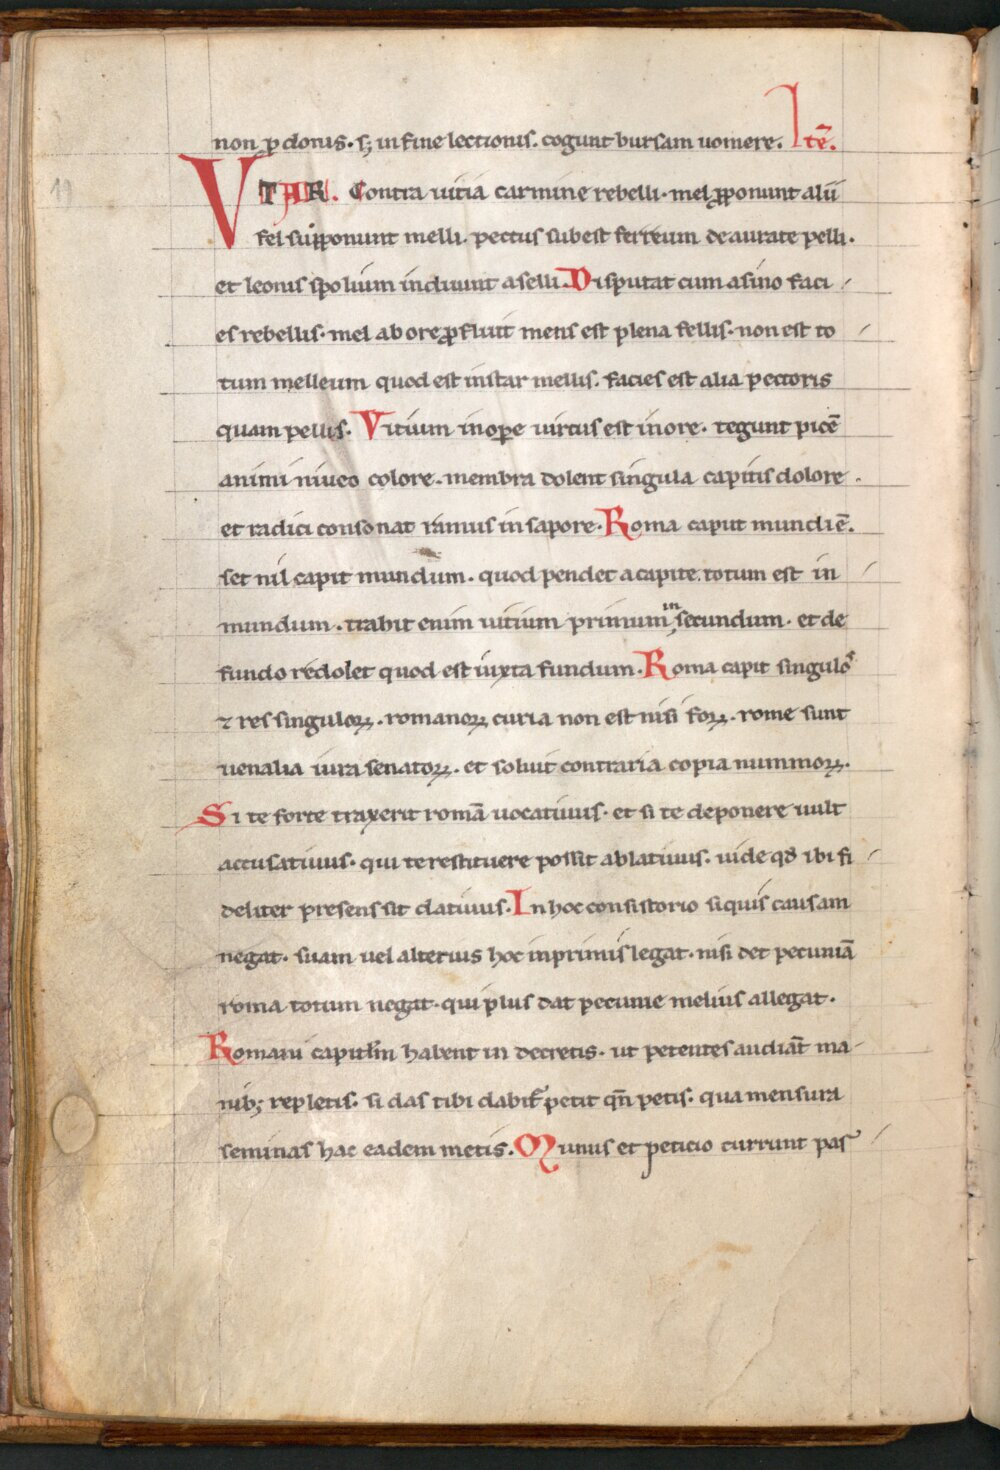 non ꝓ donis. sꝫ in fine lectionis. cogunt bursam uomere. Itē.
VTAR. Contra uitia carmine rebelli. mel ꝓponunt alii
fel supponunt melli. pectus subest ferreum deaurate pelli.
et leonis spolium induunt aselli. Disputat cum asino faci
es rebellis. mel ab ore ꝓfluit mens est plena fellis. non est to
tum melleum quod est instar mellis. facies est alia pectoris
quam pellis. Vitium in oꝑe uirtus est in ore. tegunt picē
animi niueo colore. membra dolent singula capitis dolore.
et radici consonat ramus in sapore. Roma caput mundi ē.
set nil capit mundum. quod pendet a capite totum est in
mundum. trahit enim uitium primum in secundum. et de
fundo redolet quod est iuxta fundum. Roma capit singulos
⁊ res singuloꝝ. romanoꝝ curia non est nisi foꝝ. rome sunt
uenalia iura senatoꝝ. et soluit contraria copia nummoꝝ.
Si te forte traxerit romā uocatiuus. et si te deponere uult
accusatiuus. qui te restituere possit ablatiuus. uide qđ ibi fi
deliter presens sit datiuus. In hoc consistorio siquis causam
negat. suam uel alterius hoc inprimis legat. nisi det pecuniā
roma totum negat. qui plus dat pecunie melius allegat.
Romani capitłm habent in decretis. ut petentes audiāt ma
nibꝫ repletis. si das tibi dabit͛ petit qn̄ petis. qua mensura
seminas hac eadem metis. Munus et peticio currunt pas
19